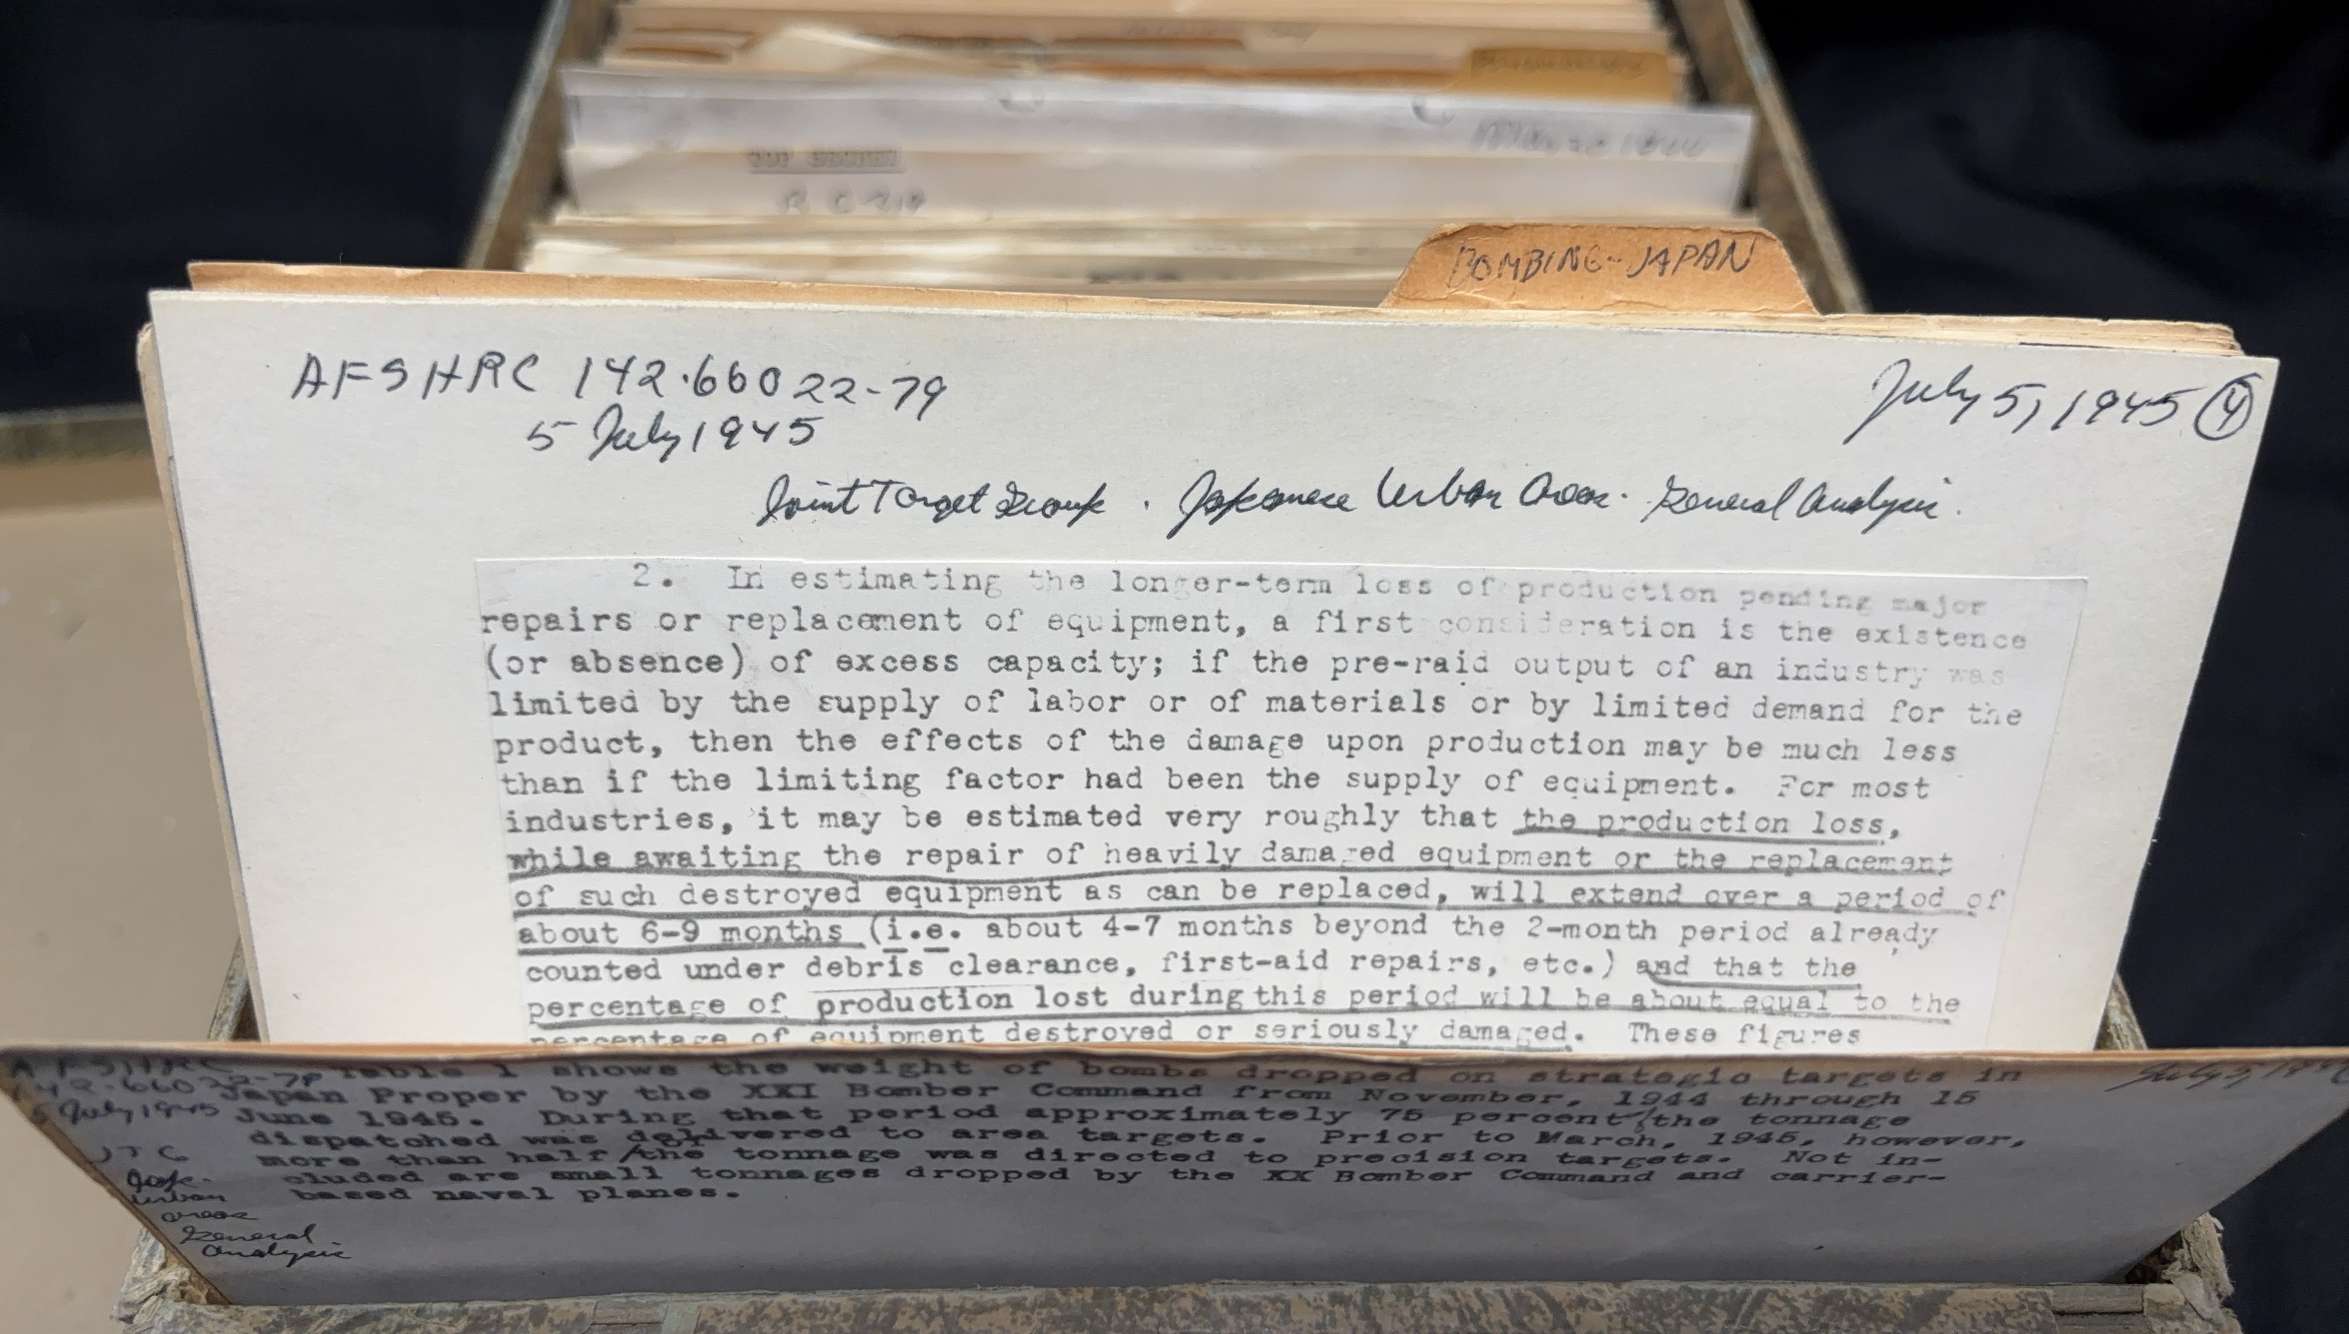 BOMBING-JAPAN
AFSHRC 142.66022-79
5 July 1945
July 5, 1945 4
Joint Target Group. Japanese Urban Areas. General Analysis.
2. In estimating the longer-term loss of production pending major
repairs or replacement of equipment, a first consideration is the existence
(or absence) of excess capacity; if the pre-raid output of an industry was
limited by the supply of labor or of materials or by limited demand for the
product, then the effects of the damage upon production may be much less
than if the limiting factor had been the supply of equipment. For most
industries, it may be estimated very roughly that the production loss,
while awaiting the repair of heavily damaged equipment or the replacement
of such destroyed equipment as can be replaced, will extend over a period of
about 6-9 months (i.e. about 4-7 months beyond the 2-month period already
counted under debris clearance, first-aid repairs, etc.) and that the
percentage of production lost during this period will be about equal to the
percentage of equipment destroyed or seriously damaged. These figures
AFSHRC
142.66022-79
5 July 1945
July 5, 194
JTG
Jap.
Urban
areas
General
Analysis
Table 1 shows the weight of bombs dropped on strategic targets in
Japan Proper by the XXI Bomber Command from November, 1944 through 15
June 1945. During that period approximately 75 percent of the tonnage
dispatched was delivered to area targets. Prior to March, 1945, however,
more than half of the tonnage was directed to precision targets. Not in-
cluded are small tonnages dropped by the XX Bomber Command and carrier-
based naval planes.